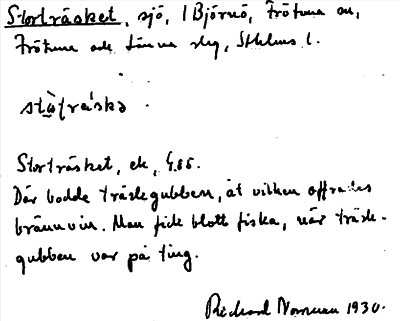 Storträsket, sjö, 1 Björnö, Frötuna sn,
Frötuna och Länna slg, Sthlms l.
stò̱ʈrá́skə .
Storträsket, ek,
Där bodde träskgubben, åt vilken offrades
brännvin. Man fick blott fiska, när träsk-
gubben var på ting.
Richard Norman 1930.